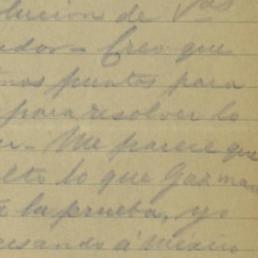 olucion de Vas
ador - Creo que
nos puntos para
para resolver lo
Me parece que
lto lo que Guzman
la prueba, yo
resando á Mexico